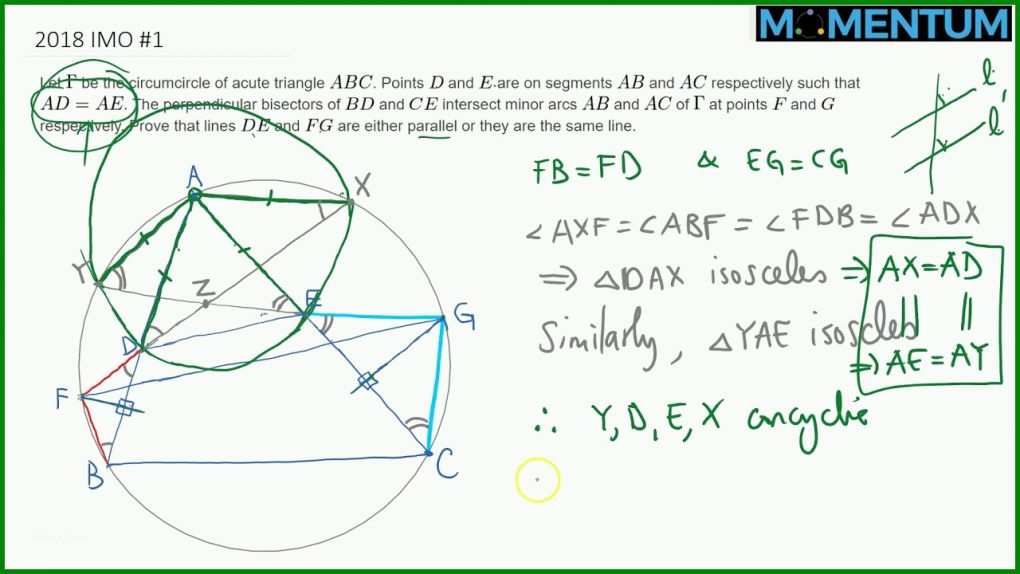 MOMENTUM
2018 IMO #1
Let Γ be the circumcircle of acute triangle ABC. Points D and E are on segments AB and AC respectively such that
AD = AE. The perpendicular bisectors of BD and CE intersect minor arcs AB and AC of Γ at points F and G
respectively. Prove that lines DE and FG are either parallel or they are the same line.
l
l'
FB=FD & EG=CG
∠AXF=∠ABF=∠FDB=∠ADX
⇒ △DAX isosceles ⇒ AX=AD
Similarly, △YAE isosceles
⇒ AE=AY
∴ Y, D, E, X concyclic
A
X
Y
Z
E
G
D
F
B
C